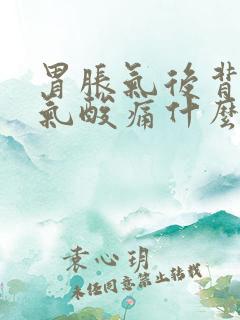 胃胀氣後背
氣酸痛什麼
袁心玥
未任同意禁止转载